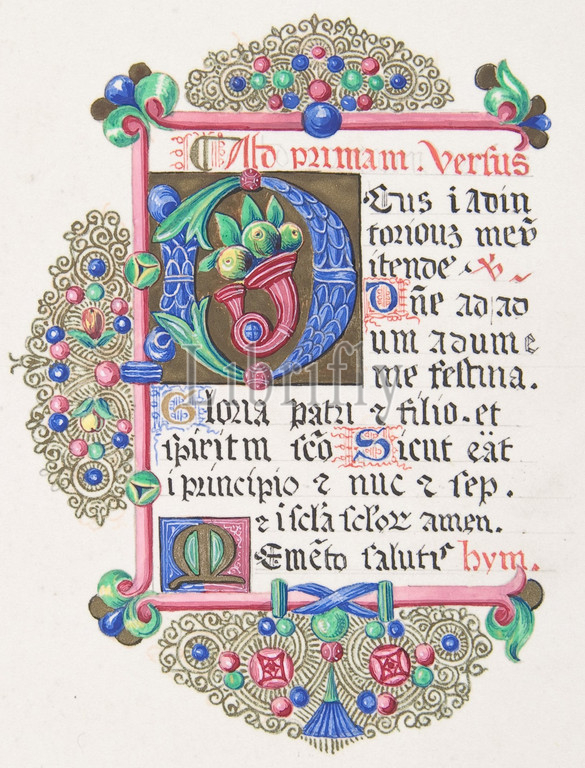 Ad primam. Versus
Deus i adiu
toriouz meū
itende ℣
Dñe ad ad
um adume
me festina.
Gloria patri ⁊ filio. et
spiritm scō Sicut eāt
i principio ⁊ nuc ⁊ sep.
⁊ i scła scłor amen.
Memēto salutis hym.
Librifly